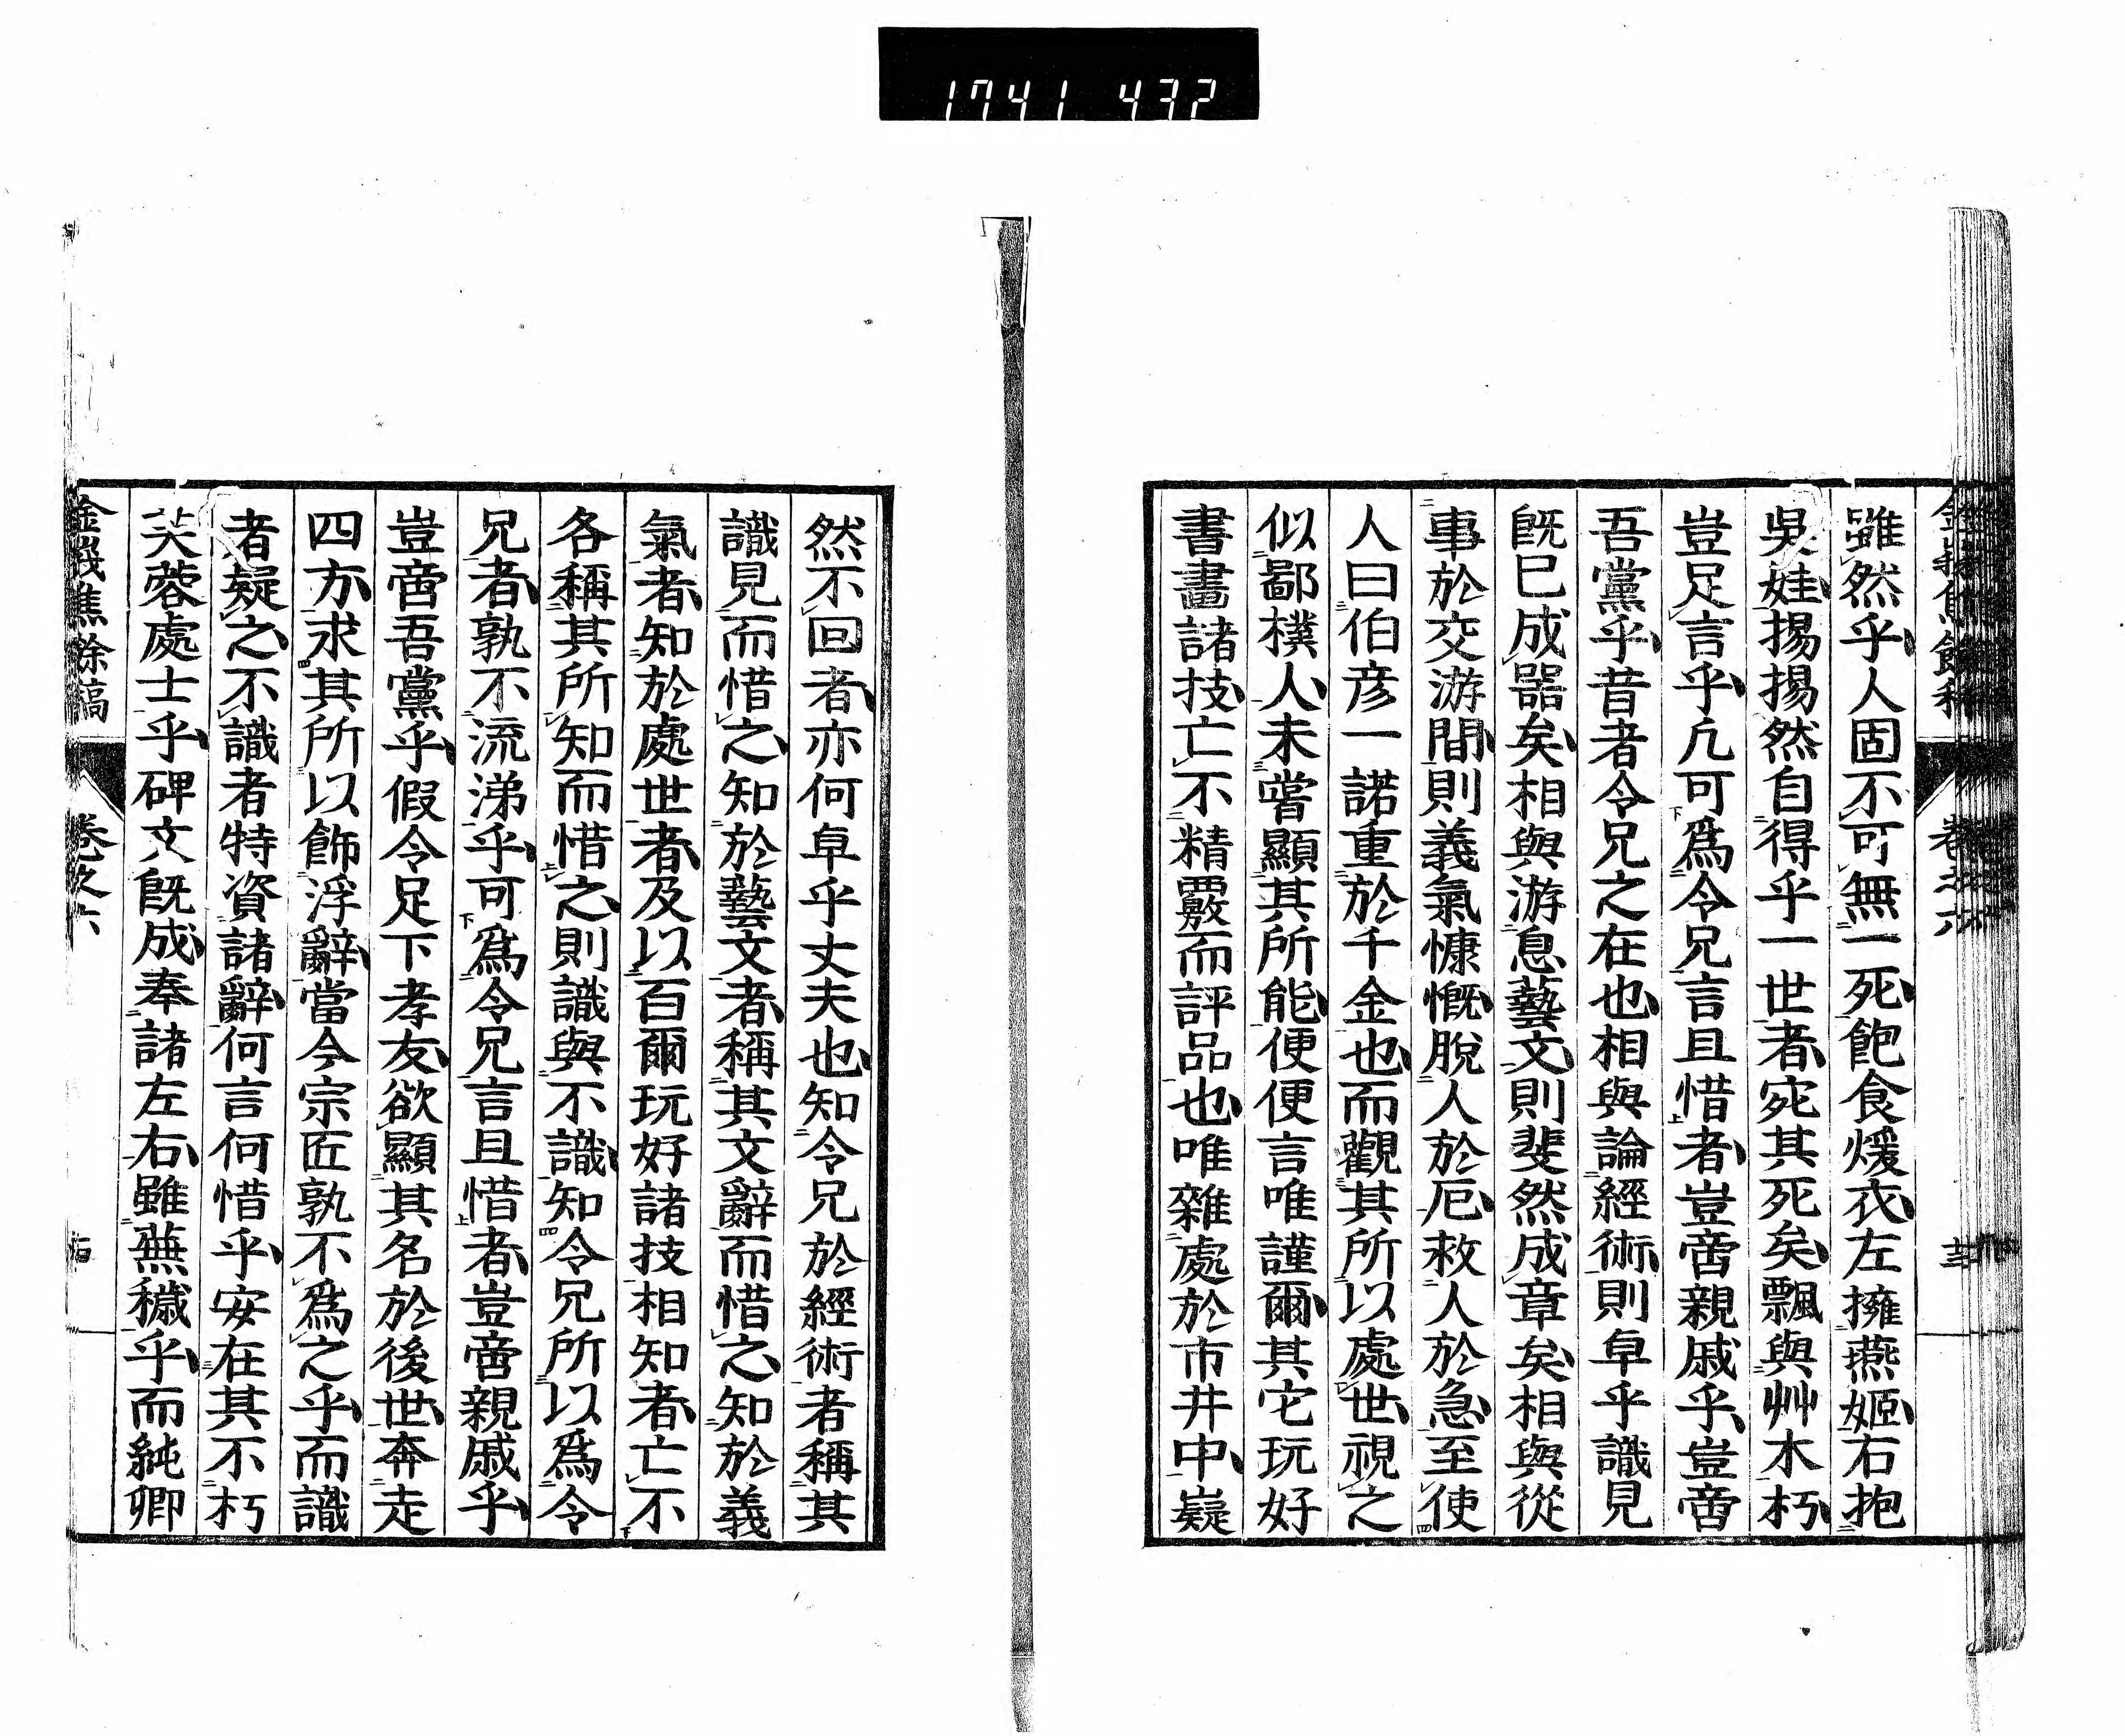 1741 432
雖然乎人固不可無一死飽食煖衣左擁燕姬右抱
吳娃揚揚然自得乎一世者宛其死矣飄與艸木朽
豈足言乎凢可爲令兄言且惜者豈啻親戚乎豈啻
吾黨乎昔者令兄之在也相與論經術則卓乎識見
旣已成器矣相與游息藝文則斐然成章矣相與從
事於交游間則義氣慷慨脫人於厄救人於急至使
人曰伯彦一諾重於千金也而觀其所以處世視之
似鄙樸人未嘗顯其所能便便言唯謹爾其它玩好
書畫諸技亡不精覈而評品也唯雜處於市井中嶷
然不回者亦何卓乎丈夫也知令兄於經術者稱其
識見而惜之知於藝文者稱其文辭而惜之知於義
氣者知於處世者及以百爾玩好諸技相知者亡不
各稱其所知而惜之則識與不識知令兄所以爲令
兄者孰不流涕乎可爲令兄言且惜者豈啻親戚乎
豈啻吾黨乎假令足下孝友欲顯其名於後世奔走
四方求其所以飾浮辭當今宗匠孰不爲之乎而識
者疑之不識者特資諸辭何言何惜乎安在其不朽
芙蓉處士乎碑文旣成奉諸左右雖蕪穢乎而純卿
卷之六